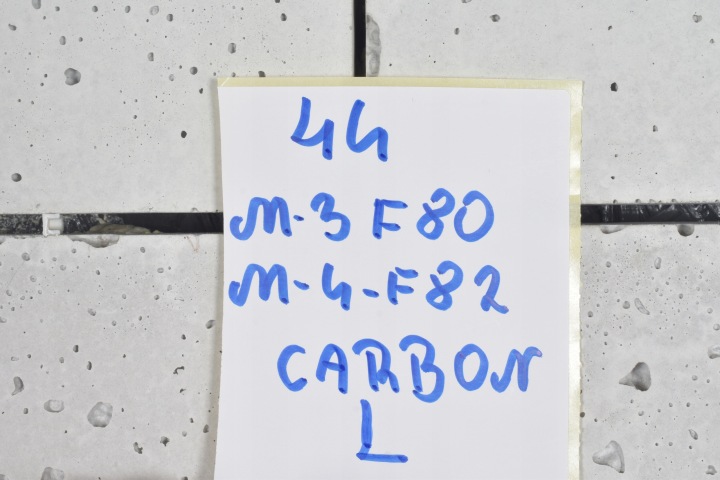 44
M-3 F80
M-4-F82
CARBON
L